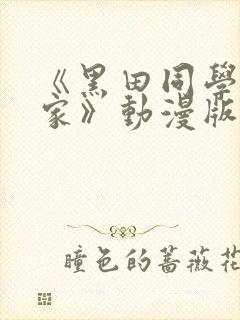 《黑田同學
家》動漫版
瞳色的薔薇花